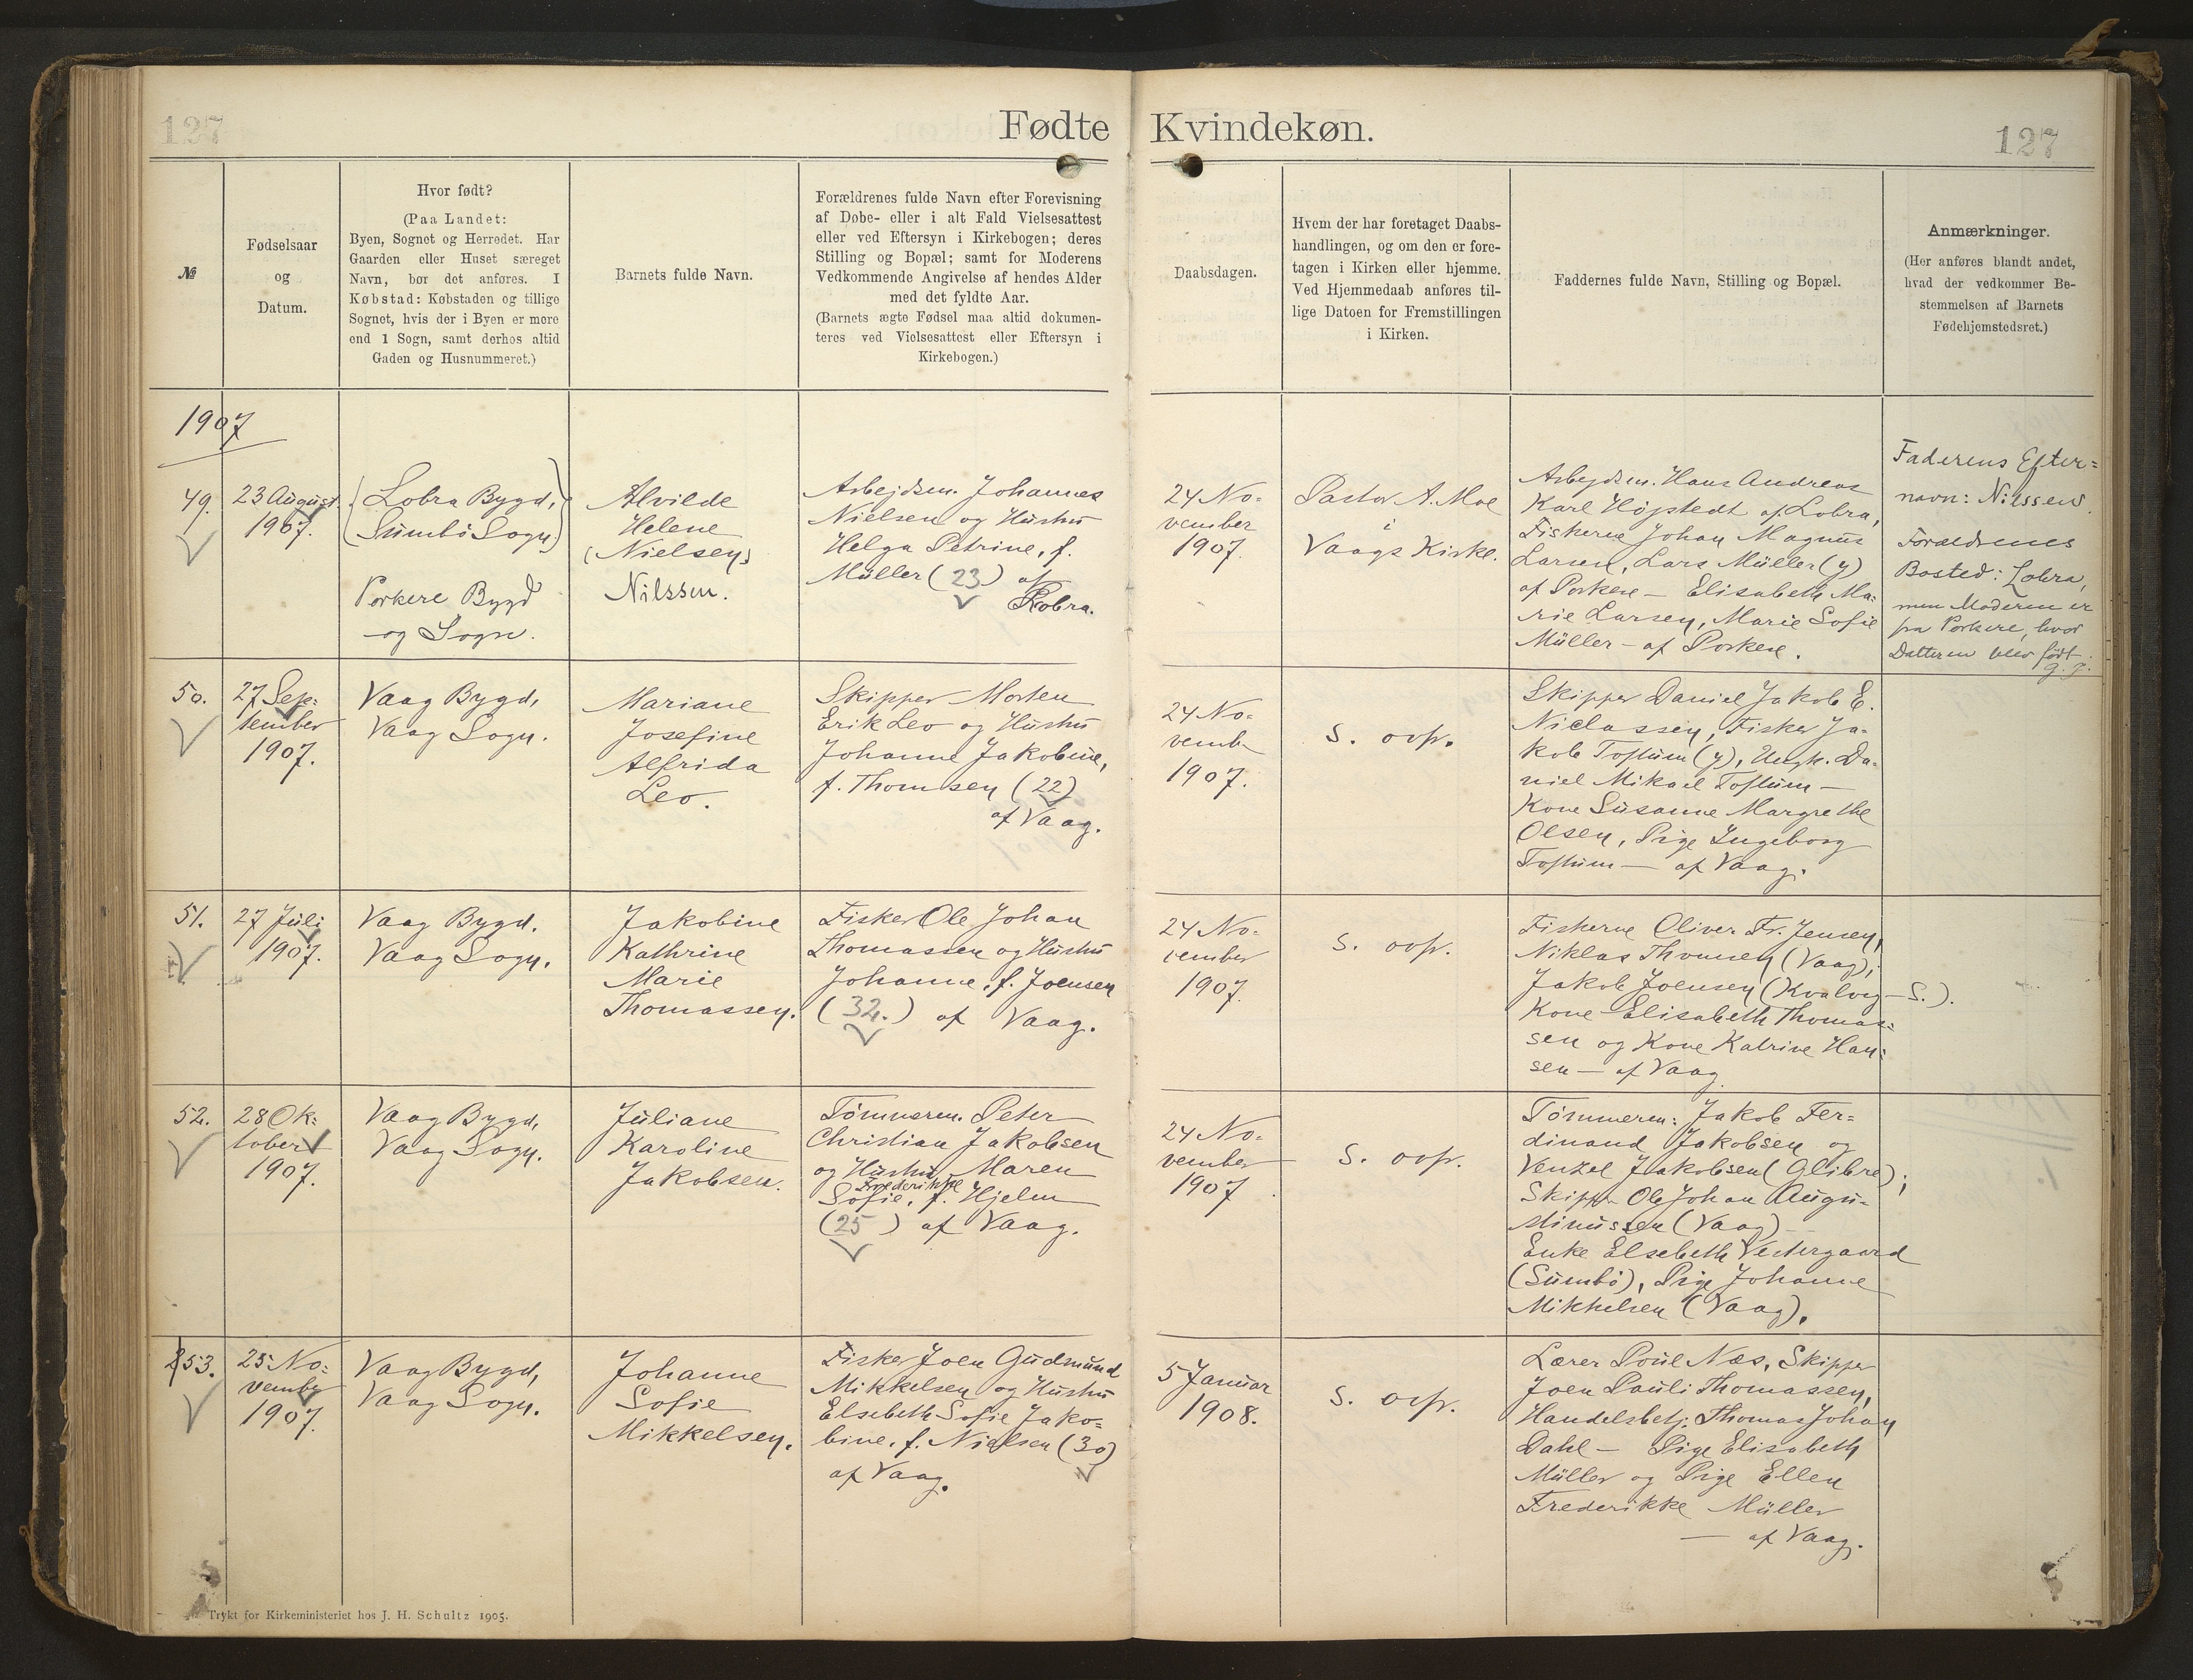 127
Fødte
Kvindekøn.
127
№
Fødselsaar
og
Datum.
Hvor født?
(Paa Landet:
Byen, Sognet og Herredet. Har
Gaarden eller Huset særeget
Navn, bør det anføres. I
Købstad: Købstaden og tillige
Sognet, hvis der i Byen er mere
end 1 Sogn, samt derhos altid
Gaden og Husnummeret.)
Barnets fulde Navn.
Forældrenes fulde Navn efter Forevisning
af Døbe- eller i alt Fald Vielsesattest
eller ved Eftersyn i Kirkebogen; deres
Stilling og Bopæl; samt for Moderens
Vedkommende Angivelse af hendes Alder
med det fyldte Aar.
(Barnets ægte Fødsel maa altid dokumen-
teres ved Vielsesattest eller Eftersyn i
Kirkebogen.)
Daabsdagen.
Hvem der har foretaget Daabs-
handlingen, og om den er fore-
tagen i Kirken eller hjemme.
Ved Hjemmedaab anføres til-
lige Datoen for Fremstillingen
i Kirken.
Faddernes fulde Navn, Stilling og Bopæl.
Anmærkninger.
(Her anføres blandt andet,
hvad der vedkommer Be-
stemmelsen af Barnets
Fødehjemstedsret.)
1907
49.
23 August
1907.
(Lobra Bygd,
Sumbö Sogn)
Porkere Bygd
og Sogn.
Alvilde
Helene
(Nielsen)
Nilssen.
Arbejdsm. Johannes
Nielsen og Hustru
Helga Petrine, f.
Müller (23) af
Lobra.
24 No-
vember
1907.
Pastor A. Moe
i
Vaags Kirke.
Arbejdsm. Hans Andreas
Karl Højstedt af Lobra,
Fiskerne Johan Magnus
Larsen, Lars Müller (y)
af Porkere — Elisabeth Ma-
rie Larsen, Marie Sofie
Müller — af Porkere.
Faderens Efter=
navn: Nilssen.
Forældrenes
Bosted: Lobra,
men Moderen er
fra Porkere, hvor
Datteren blev født
50.
27 Sep-
tember
1907.
Vaag Bygd,
Vaag Sogn.
Mariane
Josefine
Alfrida
Leo.
Skipper Morten
Erik Leo og Hustru
Johanne Jakobine,
f. Thomsen (22)
af Vaag.
24 No-
vemb.
1907.
s. ovf.
Skipper Daniel Jakob E.
Niclassen, Fisker Ja-
kob Toftum (y), Ungk. Da-
niel Mikael Toftum —
Kone Susanne Margrethe
Olsen, Pige Ingeborg
Toftum — af Vaag.
51.
27 Juli
1907.
Vaag Bygd.
Vaag Sogn.
Jakobine
Kathrine
Marie
Thomassen.
Fisker Ole Johan
Thomassen og Hustru
Johanne, f. Joensen
(32.) af Vaag.
24 No-
vember
1907.
s. ovf.
Fiskerne Oliver Fr. Jensen,
Niklas Thomsen (Vaag);
Jakob Joensen (Kvalvig — S.).
Kone Elisabeth Thomas-
sen og Kone Katrine Han-
sen — af Vaag
52.
28 Ok-
tober
1907.
Vaag Bygd,
Vaag Sogn.
Juliane
Karoline
Jakobsen.
Tömmerm. Peter
Christian Jakobsen
og Hustru Maren
Frederikke
Sofie, f. Hjelm
(25) af Vaag.
24 No-
vember
1907.
s. ovf.
Tömmerm: Jakob Fer=
dinand Jakobsen og
Venzel Jakobsen (Glibre);
Skipper Ole Johan Augu-
stinussen (Vaag) —
Enke Elsebeth Vestergaard
(Sumbö), Pige Johanne
Mikkelsen (Vaag).
53.
25 No-
vember
1907.
Vaag Bygd,
Vaag Sogn.
Johanne
Sofie
Mikkelsen.
Fisker Joen Gudmund
Mikkelsen og Hustru
Elsebeth Sofie Jako-
bine, f. Nielsen (30)
af Vaag.
5 Januar
1908.
s. ovf.
Lærer Poul Næs, Skipper
Joen Pauli Thomassen,
Handelsbetj. Thomas Johan
Dahl — Pige Elisabeth
Müller og Pige Ellen
Frederikke Müller
— af Vaag.
Trykt for Kirkeministeriet hos J. H. Schultz 1905.